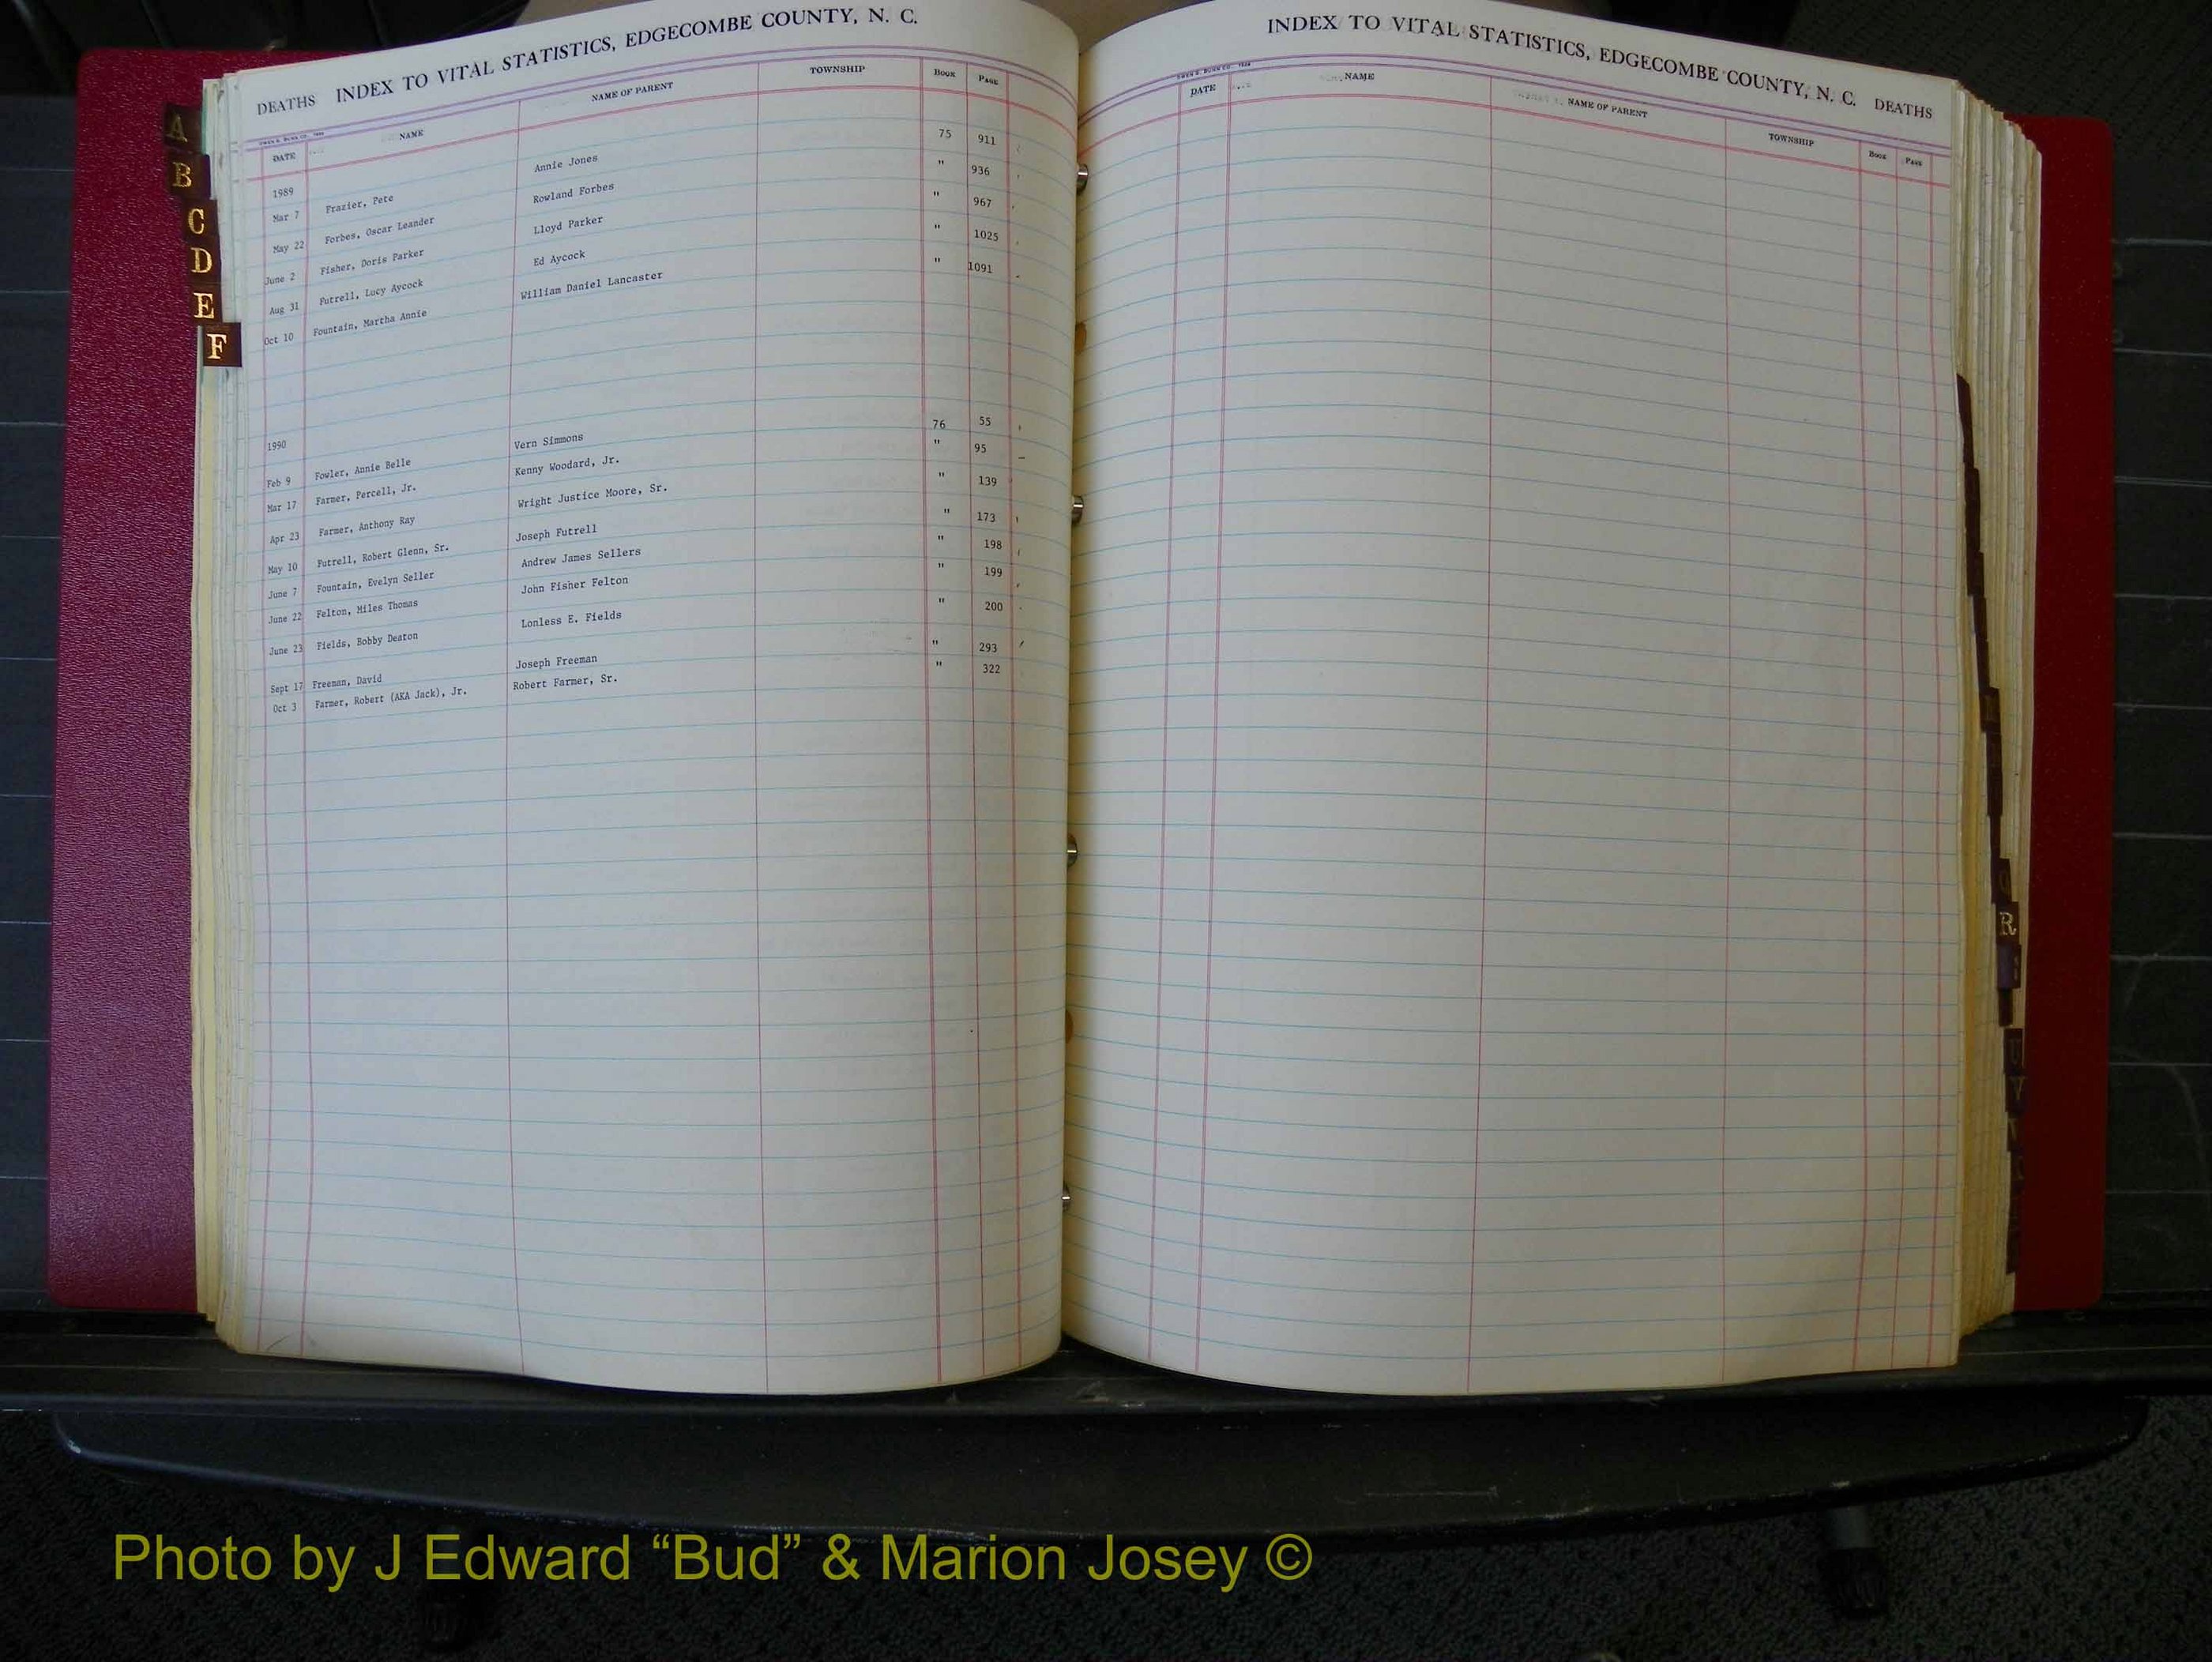 DEATHS INDEX TO VITAL STATISTICS, EDGECOMBE COUNTY, N. C.
DATE NAME NAME OF PARENT TOWNSHIP BOOK PAGE
1989
Mar 7 Frazier, Pete Annie Jones 75 911
May 22 Forbes, Oscar Leander Rowland Forbes " 936
June 2 Fisher, Doris Parker Lloyd Parker " 967
Aug 31 Futrell, Lucy Aycock Ed Aycock " 1025
Oct 10 Fountain, Martha Annie William Daniel Lancaster " 1091
1990
Feb 9 Fowler, Annie Belle Vern Simmons 76 55
Mar 17 Farmer, Percell, Jr. Kenny Woodard, Jr. " 95
Apr 23 Farmer, Anthony Ray Wright Justice Moore, Sr. " 139
May 10 Futrell, Robert Glenn, Sr. Joseph Futrell " 173
June 7 Fountain, Evelyn Seller Andrew James Sellers " 198
June 22 Felton, Miles Thomas John Fisher Felton " 199
June 23 Fields, Bobby Deaton Lonless E. Fields " 200
Sept 17 Freeman, David Joseph Freeman " 293
Oct 3 Farmer, Robert (AKA Jack), Jr. Robert Farmer, Sr. " 322
A
B
C
D
E
F
INDEX TO VITAL STATISTICS, EDGECOMBE COUNTY, N. C. DEATHS
DATE NAME NAME OF PARENT TOWNSHIP BOOK PAGE
Q
R
Photo by J Edward “Bud” & Marion Josey ©